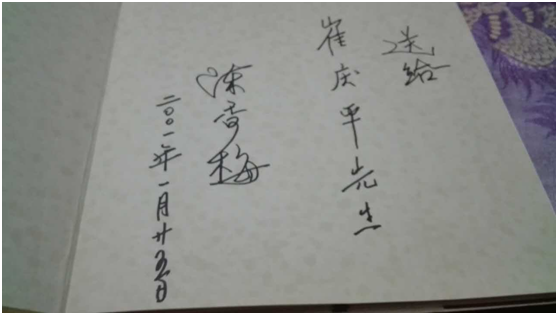 送给
崔庆平先生
陈奇梅
二〇〇一年一月廿五日